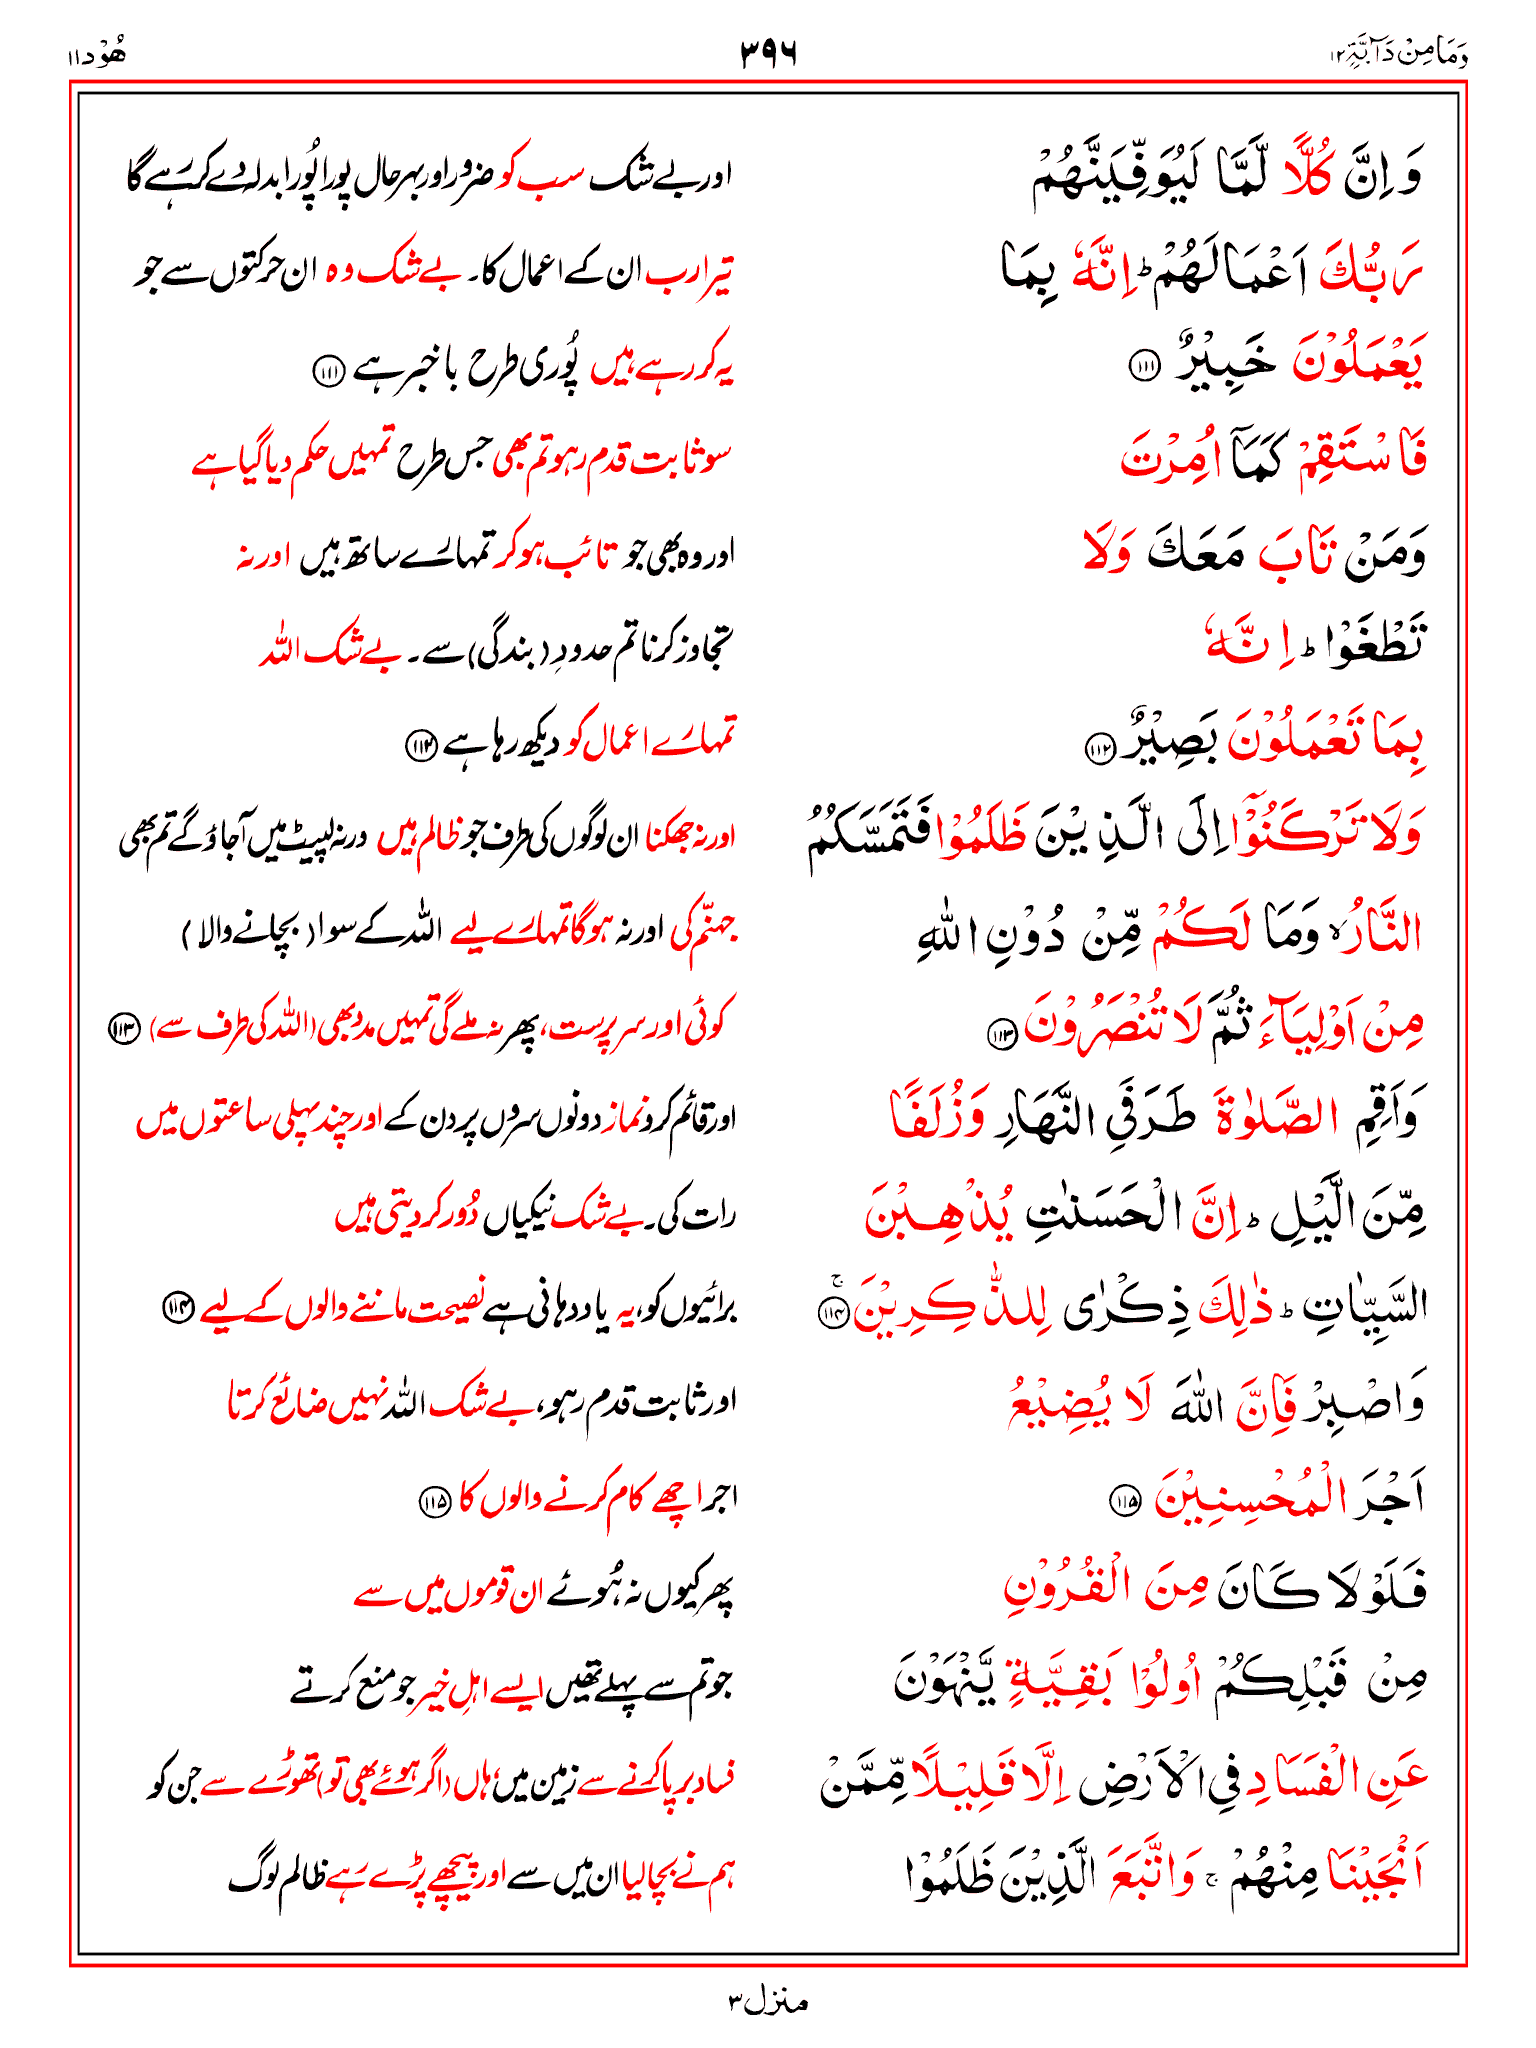 وَمَا مِنْ دَآبَّةٍ ۱۲ ۳۹۶ هُوْد ۱۱
وَاِنَّ كُلًّا لَّمَّا لَيُوَفِّيَنَّهُمْ اور بے شک سب کو ضرور اور بہرحال پورا پُورا بدلہ دے کر رہے گا
رَبُّكَ اَعْمَالَهُمْ ؕ اِنَّهٗ بِمَا تیرا رب ان کے اعمال کا۔ بے شک وہ ان حرکتوں سے جو
يَعْمَلُوْنَ خَبِيْرٌ ۝۱۱۱ یہ کر رہے ہیں پُوری طرح با خبر ہے ۝۱۱۱
فَاسْتَقِمْ كَمَآ اُمِرْتَ سو ثابت قدم رہو تم بھی جس طرح تمہیں حکم دیا گیا ہے
وَمَنْ تَابَ مَعَكَ وَلَا اور وہ بھی جو تائب ہو کر تمہارے ساتھ ہیں اور نہ
تَطْغَوْا ؕ اِنَّهٗ تجاوز کرنا تم حدودِ (بندگی) سے۔ بے شک اللہ
بِمَا تَعْمَلُوْنَ بَصِيْرٌ ۝۱۱۲ تمہارے اعمال کو دیکھ رہا ہے ۝۱۱۲
وَلَا تَرْكَنُوْۤا اِلَى الَّذِيْنَ ظَلَمُوْا فَتَمَسَّكُمُ اور نہ جھکنا ان لوگوں کی طرف جو ظالم ہیں ورنہ لپیٹ میں آجاؤ گے تم بھی
النَّارُ ۙ وَمَا لَكُمْ مِّنْ دُوْنِ اللّٰهِ جہنّم کی اور نہ ہوگا تمہارے لیے اللہ کے سوا (بچانے والا)
مِنْ اَوْلِيَآءَ ثُمَّ لَا تُنْصَرُوْنَ ۝۱۱۳ کوئی اور سرپرست، پھر نہ ملے گی تمہیں مدد بھی (اللہ کی طرف سے) ۝۱۱۳
وَاَقِمِ الصَّلٰوةَ طَرَفَيِ النَّهَارِ وَزُلَفًا اور قائم کرو نماز دونوں سروں پر دن کے اور چند پہلی ساعتوں میں
مِّنَ الَّيْلِ ؕ اِنَّ الْحَسَنٰتِ يُذْهِبْنَ رات کی۔ بے شک نیکیاں دُور کر دیتی ہیں
السَّيِّاٰتِ ؕ ذٰلِكَ ذِكْرٰى لِلذّٰكِرِيْنَ ۚ ۝۱۱۴ برائیوں کو، یہ یاد دہانی ہے نصیحت ماننے والوں کے لیے ۝۱۱۴
وَاصْبِرْ فَاِنَّ اللّٰهَ لَا يُضِيْعُ اور ثابت قدم رہو، بے شک اللہ نہیں ضائع کرتا
اَجْرَ الْمُحْسِنِيْنَ ۝۱۱۵ اجر اچھے کام کرنے والوں کا ۝۱۱۵
فَلَوْلَا كَانَ مِنَ الْقُرُوْنِ پھر کیوں نہ ہُوئے ان قوموں میں سے
مِنْ قَبْلِكُمْ اُولُوْا بَقِيَّةٍ يَّنْهَوْنَ جو تم سے پہلے تھیں ایسے اہلِ خیر جو منع کرتے
عَنِ الْفَسَادِ فِي الْاَرْضِ اِلَّا قَلِيْلًا مِّمَّنْ فساد برپا کرنے سے زمین میں؛ ہاں (اگر ہوئے بھی تو) تھوڑے سے جن کو
اَنْجَيْنَا مِنْهُمْ ۚ وَاتَّبَعَ الَّذِيْنَ ظَلَمُوْا ہم نے بچا لیا ان میں سے اور پیچھے پڑے رہے ظالم لوگ
منزل ۳